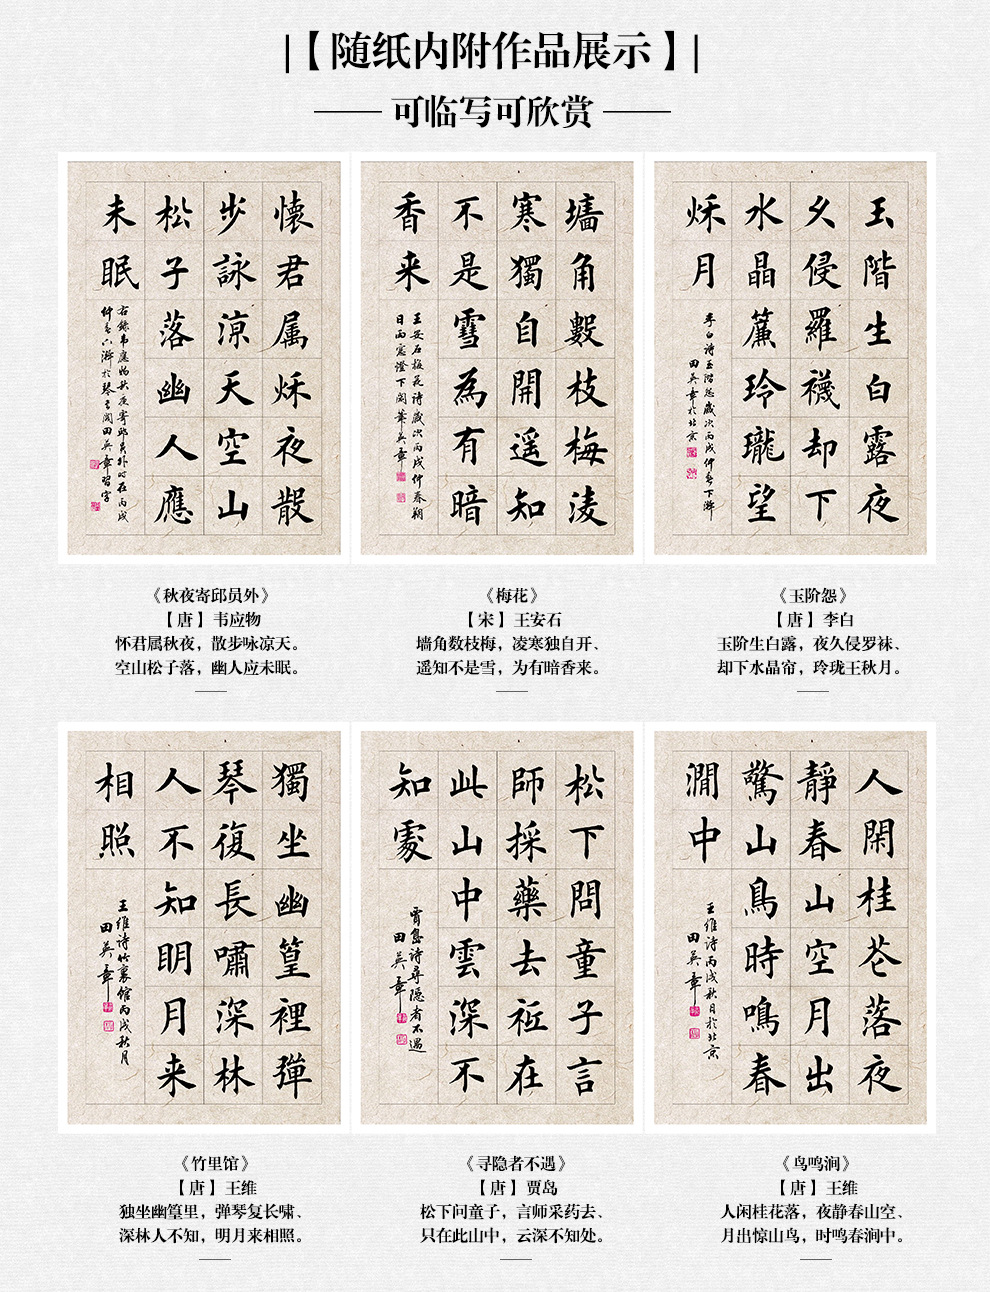 |【随纸内附作品展示】|
—— 可临写可欣赏 ——
懷君属秌夜散
步詠涼天空山
松子落幽人應
未眠
右錄韋應物秋夜寄邱員外时在丙戌
田英章習字
墻角數枝梅淩
寒獨自開遥知
不是雪為有暗
香来
王安石梅花诗歲次丙戌仲春朔
日雨窓燈下閣筆英章
玉階生白露夜
久侵羅襪却下
水晶簾玲瓏望
秌月
李白诗玉階怨歲次丙戌仲春下澣
田英章於北京
《秋夜寄邱员外》
【唐】韦应物
怀君属秋夜，散步咏凉天。
空山松子落，幽人应未眠。
《梅花》
【宋】王安石
墙角数枝梅，凌寒独自开、
遥知不是雪，为有暗香来。
《玉阶怨》
【唐】李白
玉阶生白露，夜久侵罗袜、
却下水晶帘，玲珑王秋月。
獨坐幽篁裡彈
琴復長嘯深林
人不知明月来
相照
王维诗竹裏館丙戌秋月
田英章
松下問童子言
師採藥去祗在
此山中雲深不
知處
賈島诗尋隱者不遇
田英章
人閑桂花落夜
靜春山空月出
驚山鳥時鳴春
澗中
王维诗丙戌秋日於北京
田英章
《竹里馆》
【唐】王维
独坐幽篁里，弹琴复长啸、
深林人不知，明月来相照。
《寻隐者不遇》
【唐】贾岛
松下问童子，言师采药去、
只在此山中，云深不知处。
《鸟鸣涧》
【唐】王维
人闲桂花落，夜静春山空、
月出惊山鸟，时鸣春涧中。